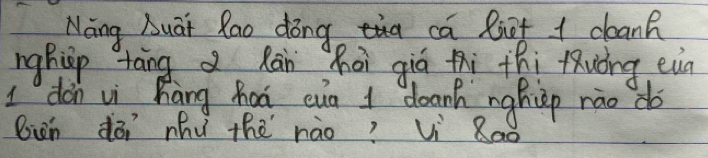 Năng suất lao động của cá biệt 1 doanh
nghiệp tăng 2 lần hỏi giá thị thị trường của
1 đơn vị hàng hoá của 1 doanh nghiệp nào đó
biến đổi như thế nào ? Vì sao